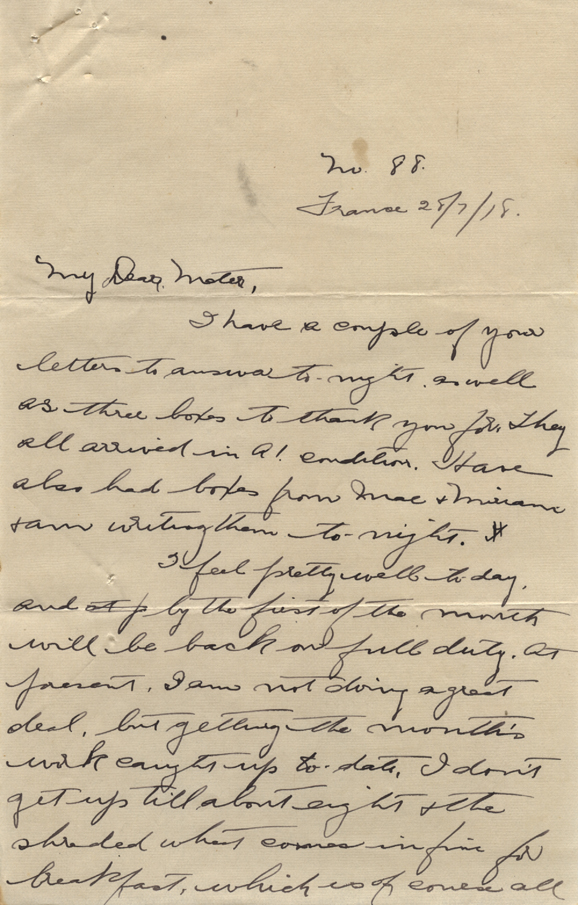 No. 88.
France 28/7/18.
My Dear Mater,
I have a couple of your
letters to answer to-night, as well
as three boxes to thank you for. They
all arrived in A1. condition. Have
also had boxes from Mac & Miriam
& am writing them to-night.
I feel pretty well to day,
and at p by the first of the month
will be back on full duty. At
present, I am not doing a great
deal, but getting the month's
work caught up to-date, I don't
get up till about eight & the
shreded wheat comes in fine for
breakfast, which is of course all